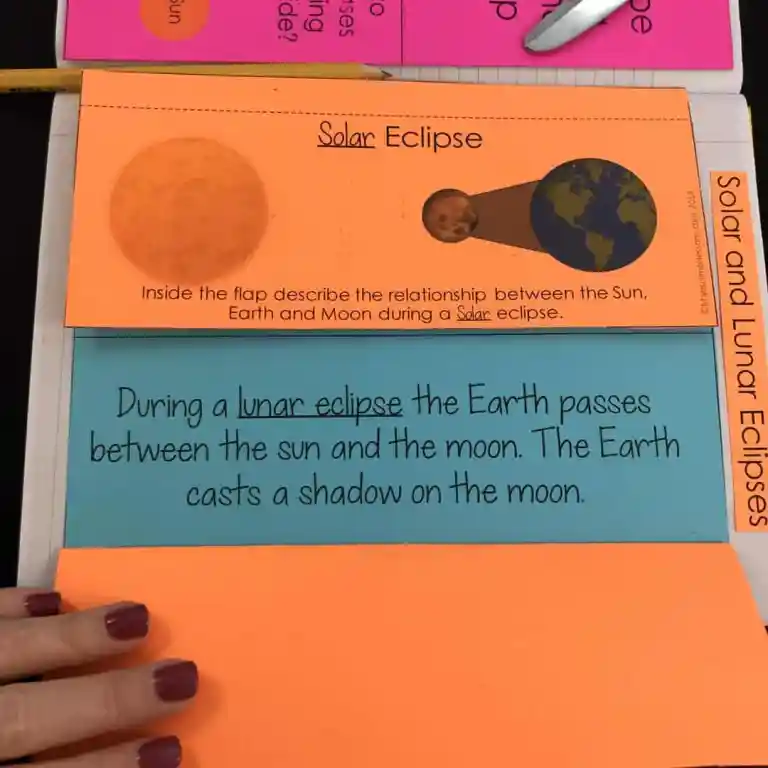 Sun
Solar Eclipse
Inside the flap describe the relationship between the Sun,
Earth and Moon during a Solar eclipse.
During a lunar eclipse the Earth passes
between the sun and the moon. The Earth
casts a shadow on the moon.
Solar and Lunar Eclipses